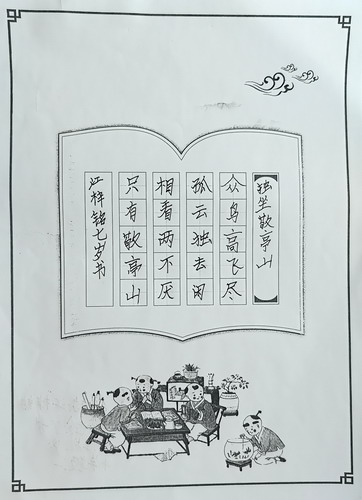 独坐敬亭山
众鸟高飞尽
孤云独去闲
相看两不厌
只有敬亭山
江梓铭七岁书